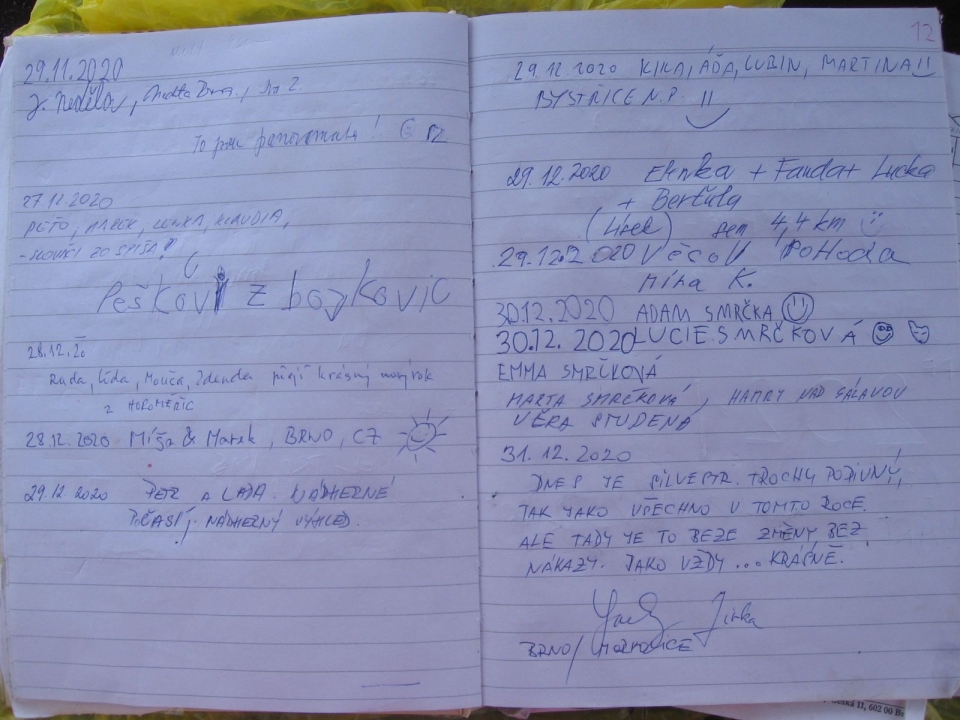 29.11.2020
J. Neděla,
To jsou panoramata!
27.12.2020
PEŤO, MAREK, LENKA, KLAUDIA,
- SLOVÁCI ZO SPIŠA!
Peškovi z bojkovic
28.12.20
Ruda, Lída, Monča, Zdenda přejí krásný nový rok
z HOROMĚŘIC
28.12.2020 Míša & Marek, BRNO, CZ
29.12.2020 PETR A LÁĎA. NÁDHERNÉ
POČASÍ, NÁDHERNÝ VÝHLED.
12
29.12.2020 KIKA, ÁĎA, LUBIN, MARTINA!!
BYSTŘICE N.P. !!
29.12.2020 Elinka + Fanda + Lucka
+ Bertula
(Útěch) sem 4,4 km
29.12.2020 VĚCOV POHODA
Míra K.
30.12.2020 ADAM SMRČKA
30.12.2020 LUCIE SMRČKOVÁ
EMMA SMRČKOVÁ
MARTA SMRČKOVÁ, HAMRY NAD SÁZAVOU
VĚRA STUDENÁ
31.12.2020
DNES JE SILVESTR. TROCHU PODIVNÝ,
TAK JAKO VŠECHNO V TOMTO ROCE.
ALE TADY JE TO BEZE ZMĚNY, BEZ
NÁKAZY. JAKO VŽDY ... KRÁSNĚ.
Jirka
BRNO/
11, 602 00 B